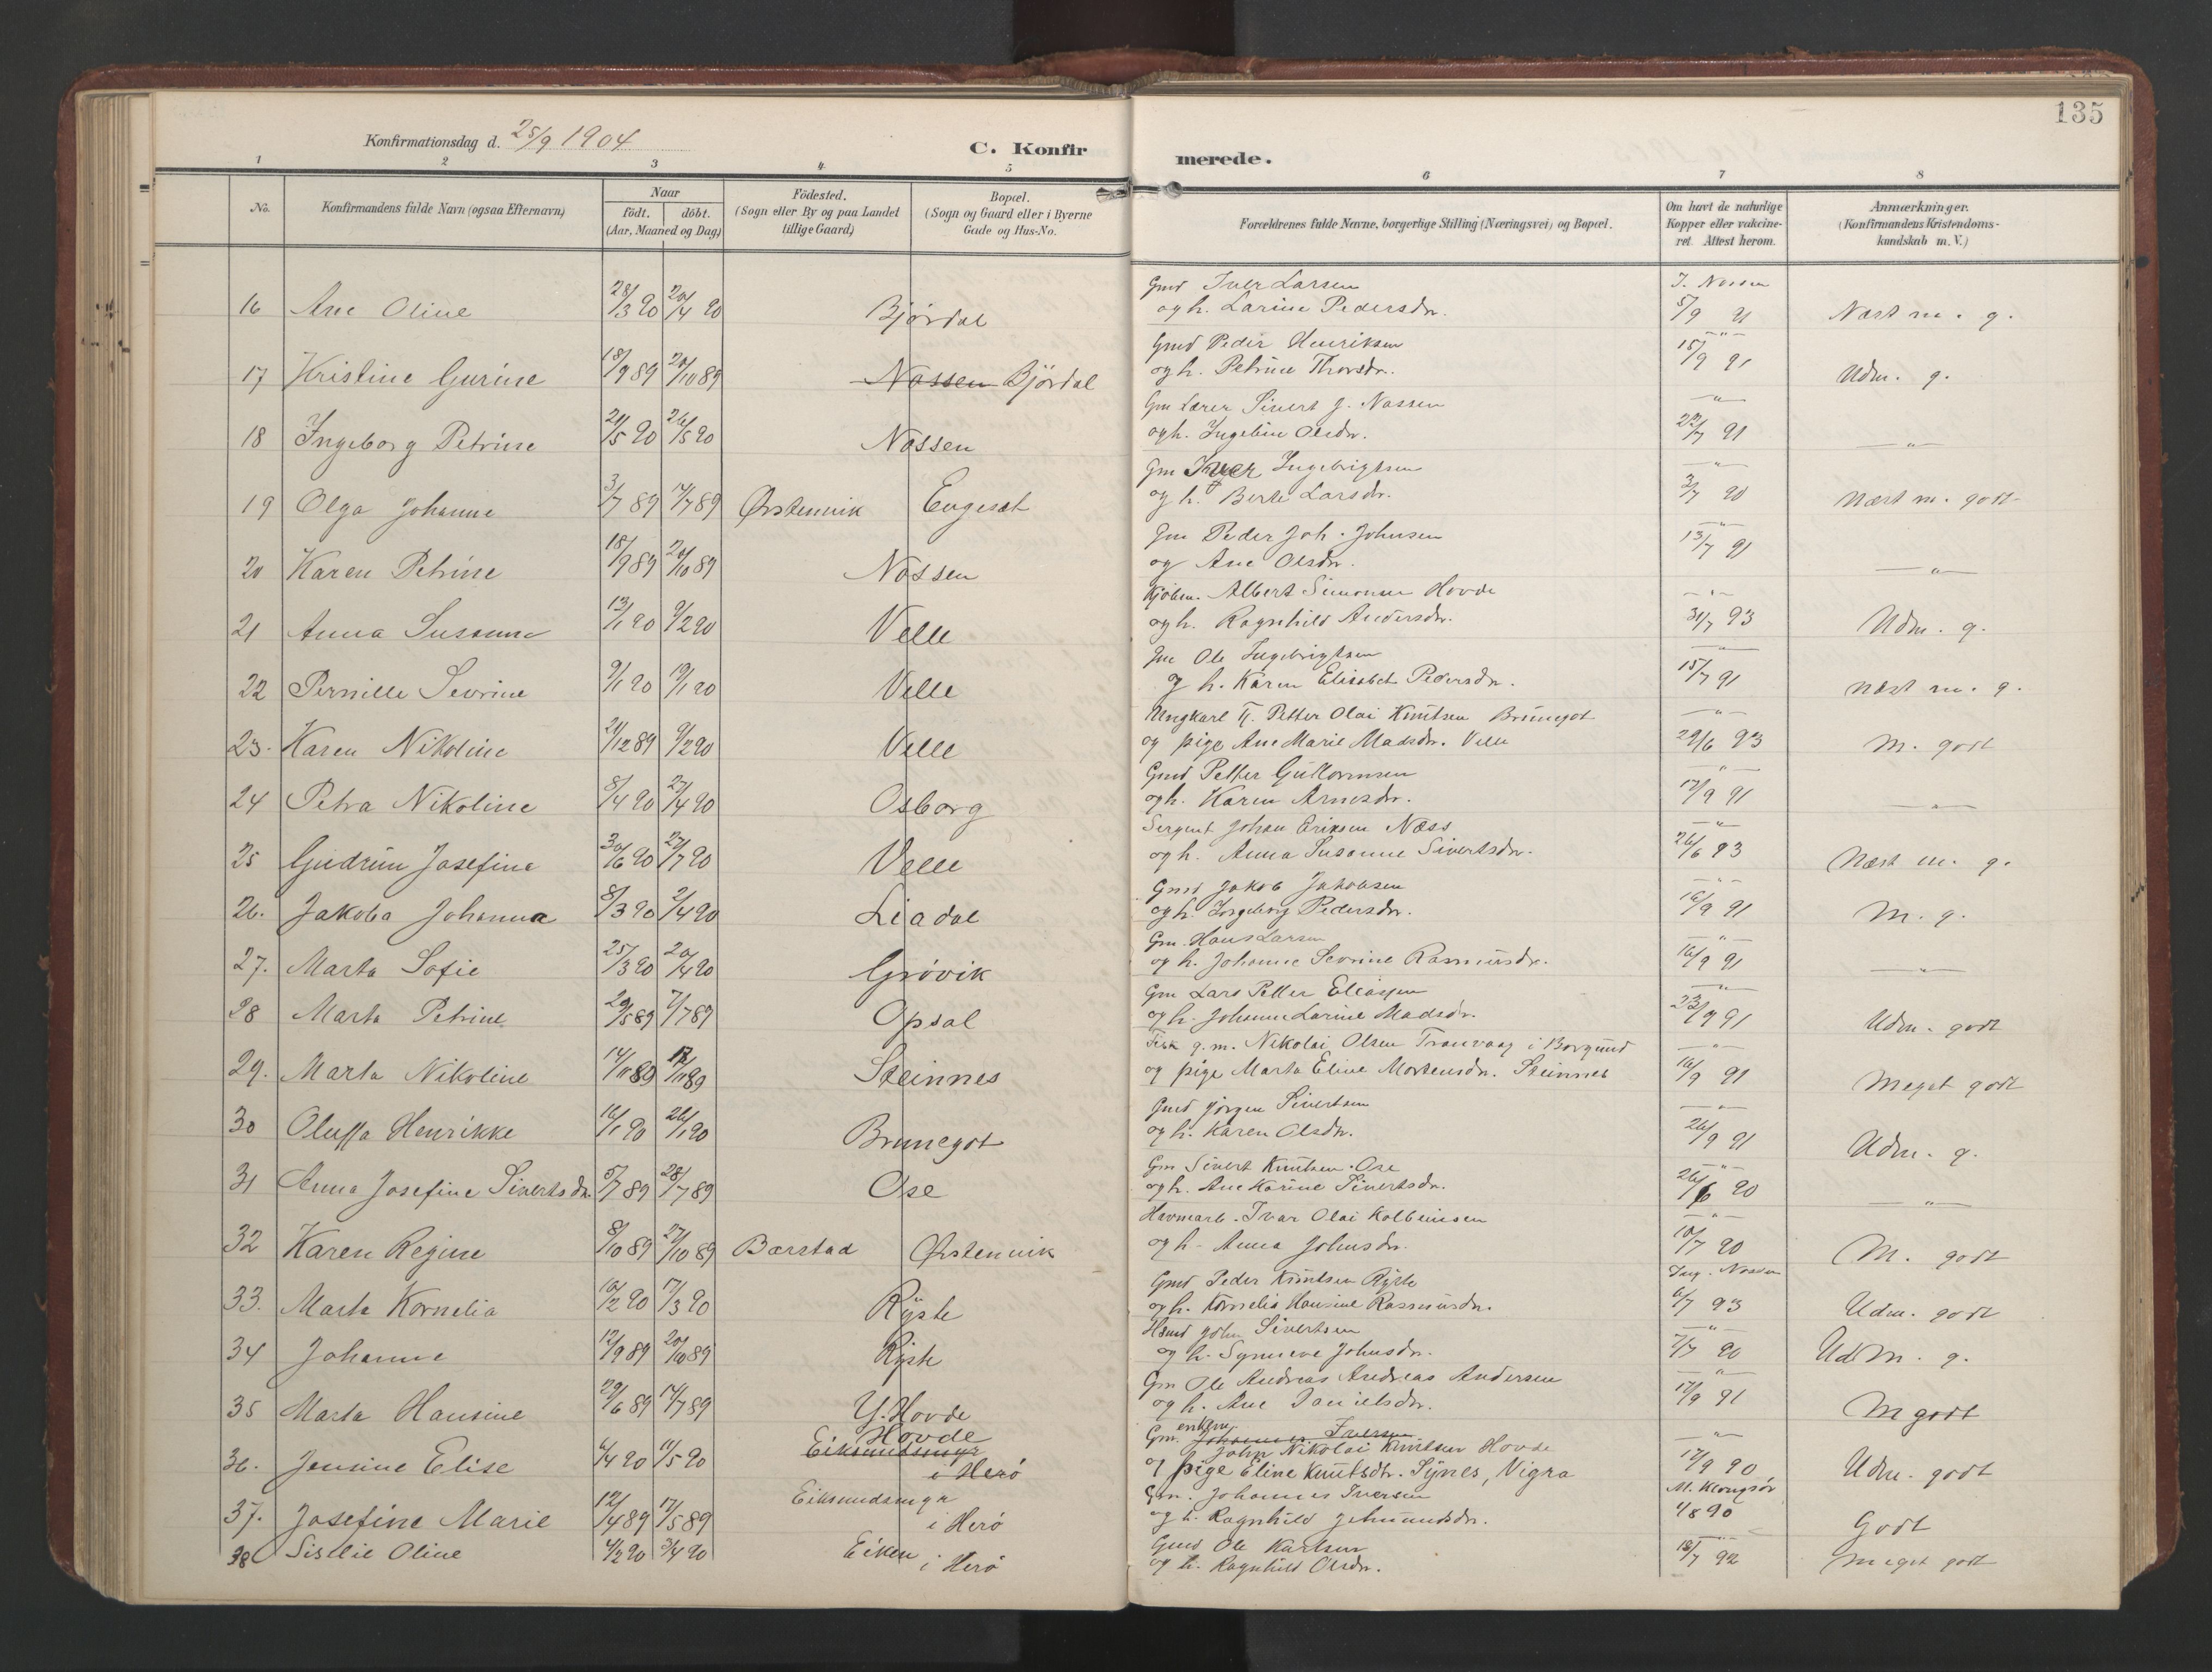 135
Konfirmationsdag d. 25/9 1904
C. Konfirmerede.
1 2 3 4 5 6 7 8
No.
Konfirmandens fulde Navn (ogsaa Efternavn)
Naar
födt. döbt.
(Aar, Maaned og Dag)
Födested.
(Sogn eller By og paa Landet
tillige Gaard)
Bopæl.
(Sogn og Gaard eller i Byerne
Gade og Hus-No.
Forældrenes fulde Navne, borgerlige Stilling (Næringsvei) og Bopæl.
Om havt de naturlige
Kopper eller vakcine-
ret. Attest herom.
Anmærkninger.
(Konfirmandens Kristendoms-
kundskab m. V.)
16 Ane Oline 28/3 90 20/4 90 Bjørdal Gmd Iver Larsen
og h. Larine Pedersdr. I. Nossen 5/9 91 Næst m. g.
17 Kristine Gurine 18/9 89 20/10 89 Nossen Bjørdal Gmd Peder Henriksen
og h. Petrine Thorsdr. 15/9 91 Udm. g.
18 Ingeborg Petrine 21/5 90 26/5 90 Nossen Gm Lærer Sivert J. Nossen
og h. Ingeline Olsdr. 22/7 91 — " —
19 Olga Johanne 3/7 89 14/7 89 Ørstenvik Engeset Gm Iver Ingebrigtsen
og h. Berte Larsdr. 3/7 90 Næst m. godt
20 Karen Petrine 18/9 89 20/10 89 Nossen Gm Peder Joh. Johnsen
og Ane Olsdr. 13/7 91 — " —
21 Anna Susanne 13/1 90 9/2 90 Velle Kjøbm. Albert Simonsen Hovde
og h. Ragnhild Andersdr. 31/7 93 Udm. g.
22 Pernille Sevrine 9/1 90 19/1 90 Velle Gm Ole Ingebrigtsen
og h. Karen Elisabet Pedersdr. 15/7 91 næst m. g.
23. Karen Nikoline 21/12 89 9/2 90 Velle Ungkarl Tj. Petter Olai Knutsen Brunegot
og pige Ane Marie Madsdr. Velle 29/6 93 M. godt
24 Petra Nikoline 8/4 90 27/4 90 Osborg Gmd Petter Guttormsen
og h. Karen Arnesdr. 17/9 91 — " —
25 Gudrun Josefine 30/6 90 27/7 90 Velle Sergent Johan Eriksen Næss
og h. Anna Susanne Sivertsdr. 26/6 93 Næst m. g.
26. Jakoba Johanna 8/3 90 2/4 90 Liadal Gmd Jakob Jakobsen
og h. Ingeborg Pedersdr. 16/9 91 M. g.
27. Marta Sofie 25/3 90 20/4 90 Grøvik Gm. Hans Larsen
og h. Johanne Sevrine Rasmusdr. 16/9 91 — " —
28 Marta Petrine 29/5 89 7/7 89 Opsal Gm Lars Petter Eliassen
og h. Johanne Larine Madsdr. 23/9 91 Udm. godt
29. Marta Nikoline 14/11 89 17/11 89 Steinnes Fisk g.m. Nikolai Olsen Tranvaag i Borgund
og pige Marta Eline Mortensdr. Steinnes 16/9 91 Meget godt
30 Oluffa Henrikke 16/1 90 26/1 90 Brunegot Gmd Jørgen Sivertsen
og h. Karen Olsdr. 26/9 91 Udm. g.
31 Anna Josefine Sivertsdr. 5/7 89 28/7 89 Ose Gm Sivert Knutsen Ose
og h. Ane Karine Sivertsdr. 26/6 90 — " —
32 Karen Regine 8/10 89 27/10 89 Barstad Ørstenvik Havnearb. Ivar Olai Kolbeinsen
og h. Anna Johnsdr. 10/7 90 M. godt
33. Marta Kornelia 10/2 90 17/3 90 Ryste Gmd Peder Knutsen Ryste
og h. Kornelia Hansine Rasmusdr. Ing. Nossen 6/7 93 Udm. godt
34 Johanne 12/9 89 20/10 89 Ryste Hsmd John Sivertsen
og h. Synneve Johnsdr. 7/7 90 Udm. g.
35 Marta Hansine 29/6 89 14/7 89 Y. Hovde Gm Ole Andreas Andreas Andersen
og h. Ane Danielsdr. 17/9 91 M godt
36. Jensine Elise 6/4 90 11/5 90 Hovde
Eiksundsmyr i Herø Gm. enkem. Johannes Iversen
John Nikolai Knutsen Hovde
og pige Eline Knutsdtr. Synes, Vigra 17/9 90 Udm. godt
37. Josefine Marie 12/4 89 17/5 89 Eiksundsmyr
i Herø Gm. Johannes Iversen
og h. Ragnhild Jetmundsdr. M. Klongsør 4/8 90 Godt
38 Sisilie Oline 4/2 90 3/4 90 Eiken i Herø Gmd Ole Karlsen
og h. Ragnhild Olsdr. 18/7 92 Meget godt